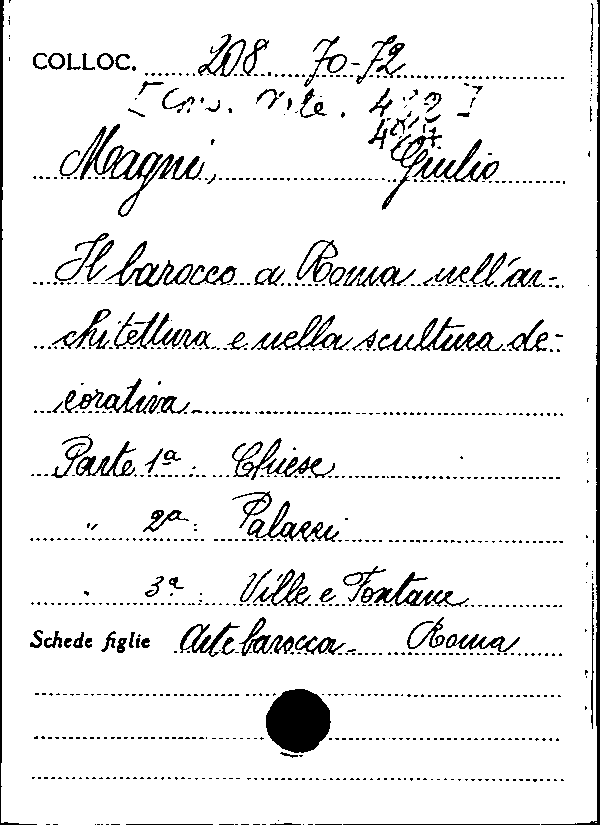 COLLOC. 208. 70-72
Magni, Giulio
Il barocco a Roma nell'ar-
chitettura e nella scultura de-
corativa -
Parte 1ª : Chiese
" 2ª : Palazzi
" 3ª : Ville e Fontane
Schede figlie Arte barocca - Roma